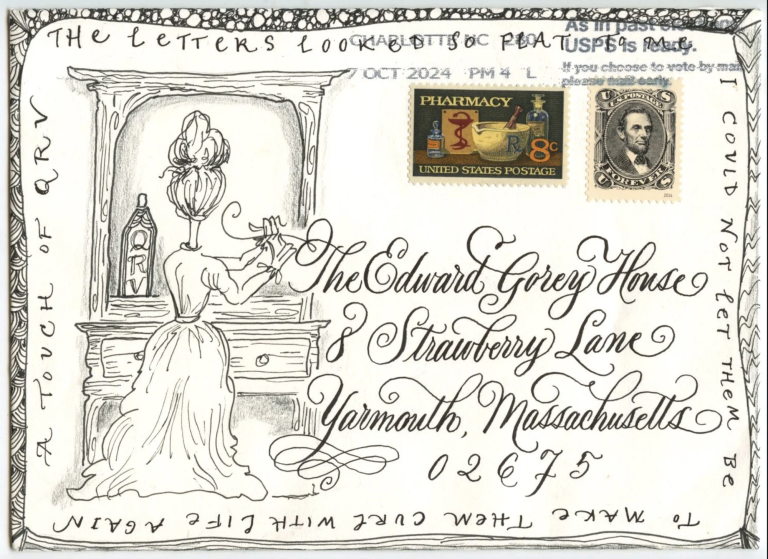 THE LETTERS LOOKED SO FLAT TO ME
I COULD NOT LET THEM BE
TO MAKE THEM CURL WITH LIFE AGAIN
A TOUCH OF QRV
CHARLOTTE NC
7 OCT 2024 PM 4 L
As in past
USPS is ready.
If you choose to vote by mail
please mail early.
PHARMACY
Rx
8c
UNITED STATES POSTAGE
U S
U.S. POSTAGE
FOREVER
QRV
The Edward Gorey House
8 Strawberry Lane
Yarmouth, Massachusetts
02675